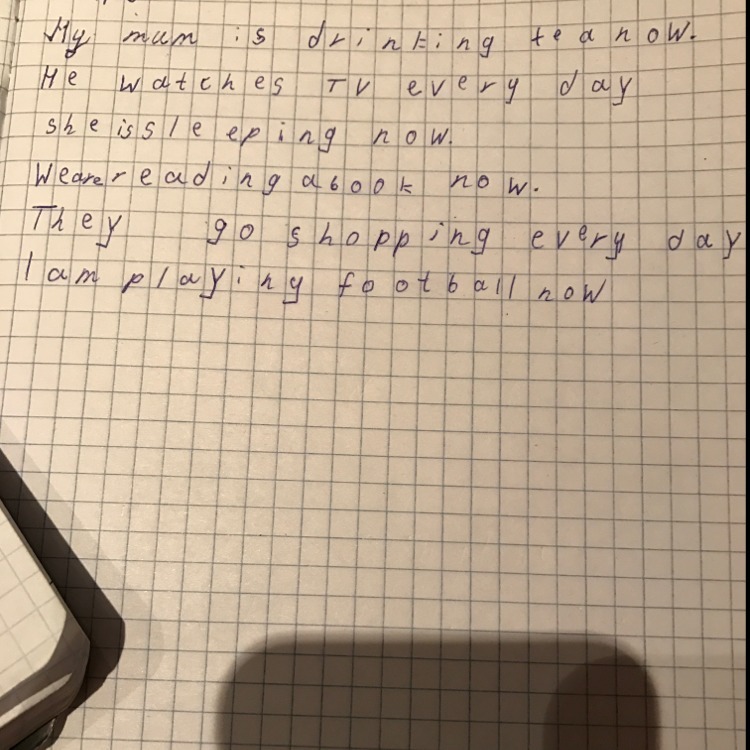 My mum is drinking tea now.
He watches TV every day
she is sleeping now.
We are reading a book now.
They go shopping every day
I am playing football now